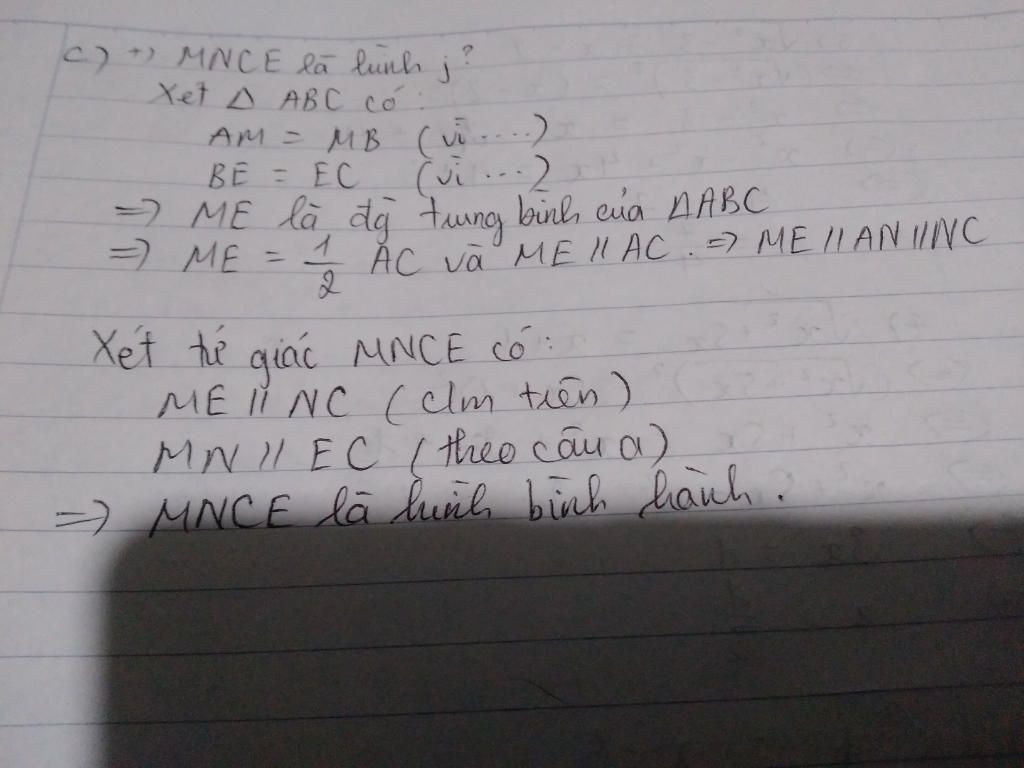 c) +) MNCE là hình j?
Xét Δ ABC có:
AM = MB (vì ....)
BE = EC (vì ...)
=> ME là đg trung bình của ΔABC
=> ME = 1/2 AC và ME // AC. => ME // AN // NC
Xét tứ giác MNCE có:
ME // NC (cm trên)
MN // EC (theo câu a)
=> MNCE là hình bình hành.